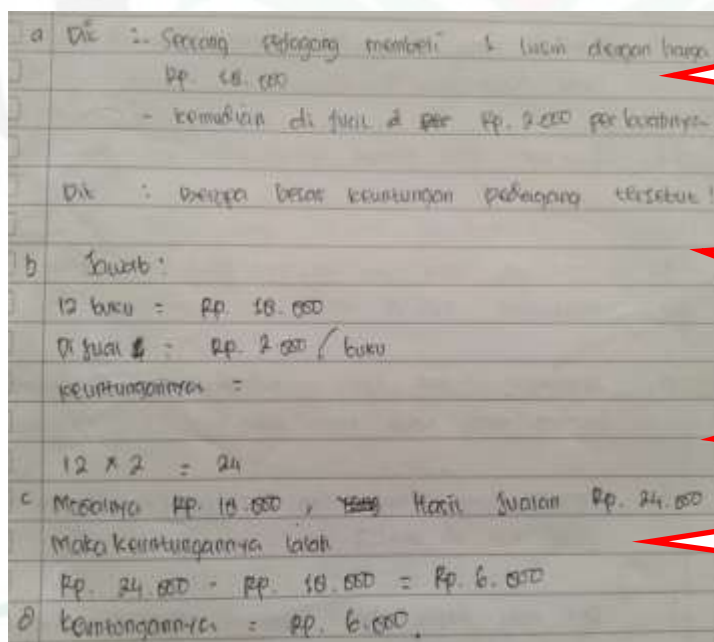 a Dik : - Seorang pedagang membeli 1 lusin dengan harga
Rp. 18.000
- kemudian di jual Rp. 2.000 per bukunya
Dit : Berapa besar keuntungan pedagang tersebut
b Jawab :
12 buku = Rp. 18.000
Di jual = Rp. 2.000 / buku
keuntungannya =
12 x 2 = 24
c Modalnya Rp. 18.000 , Hasil Jualan Rp. 24.000
Maka keuntungannya ialah
Rp. 24.000 - Rp. 18.000 = Rp. 6.000
d keuntongannya = Rp. 6.000.